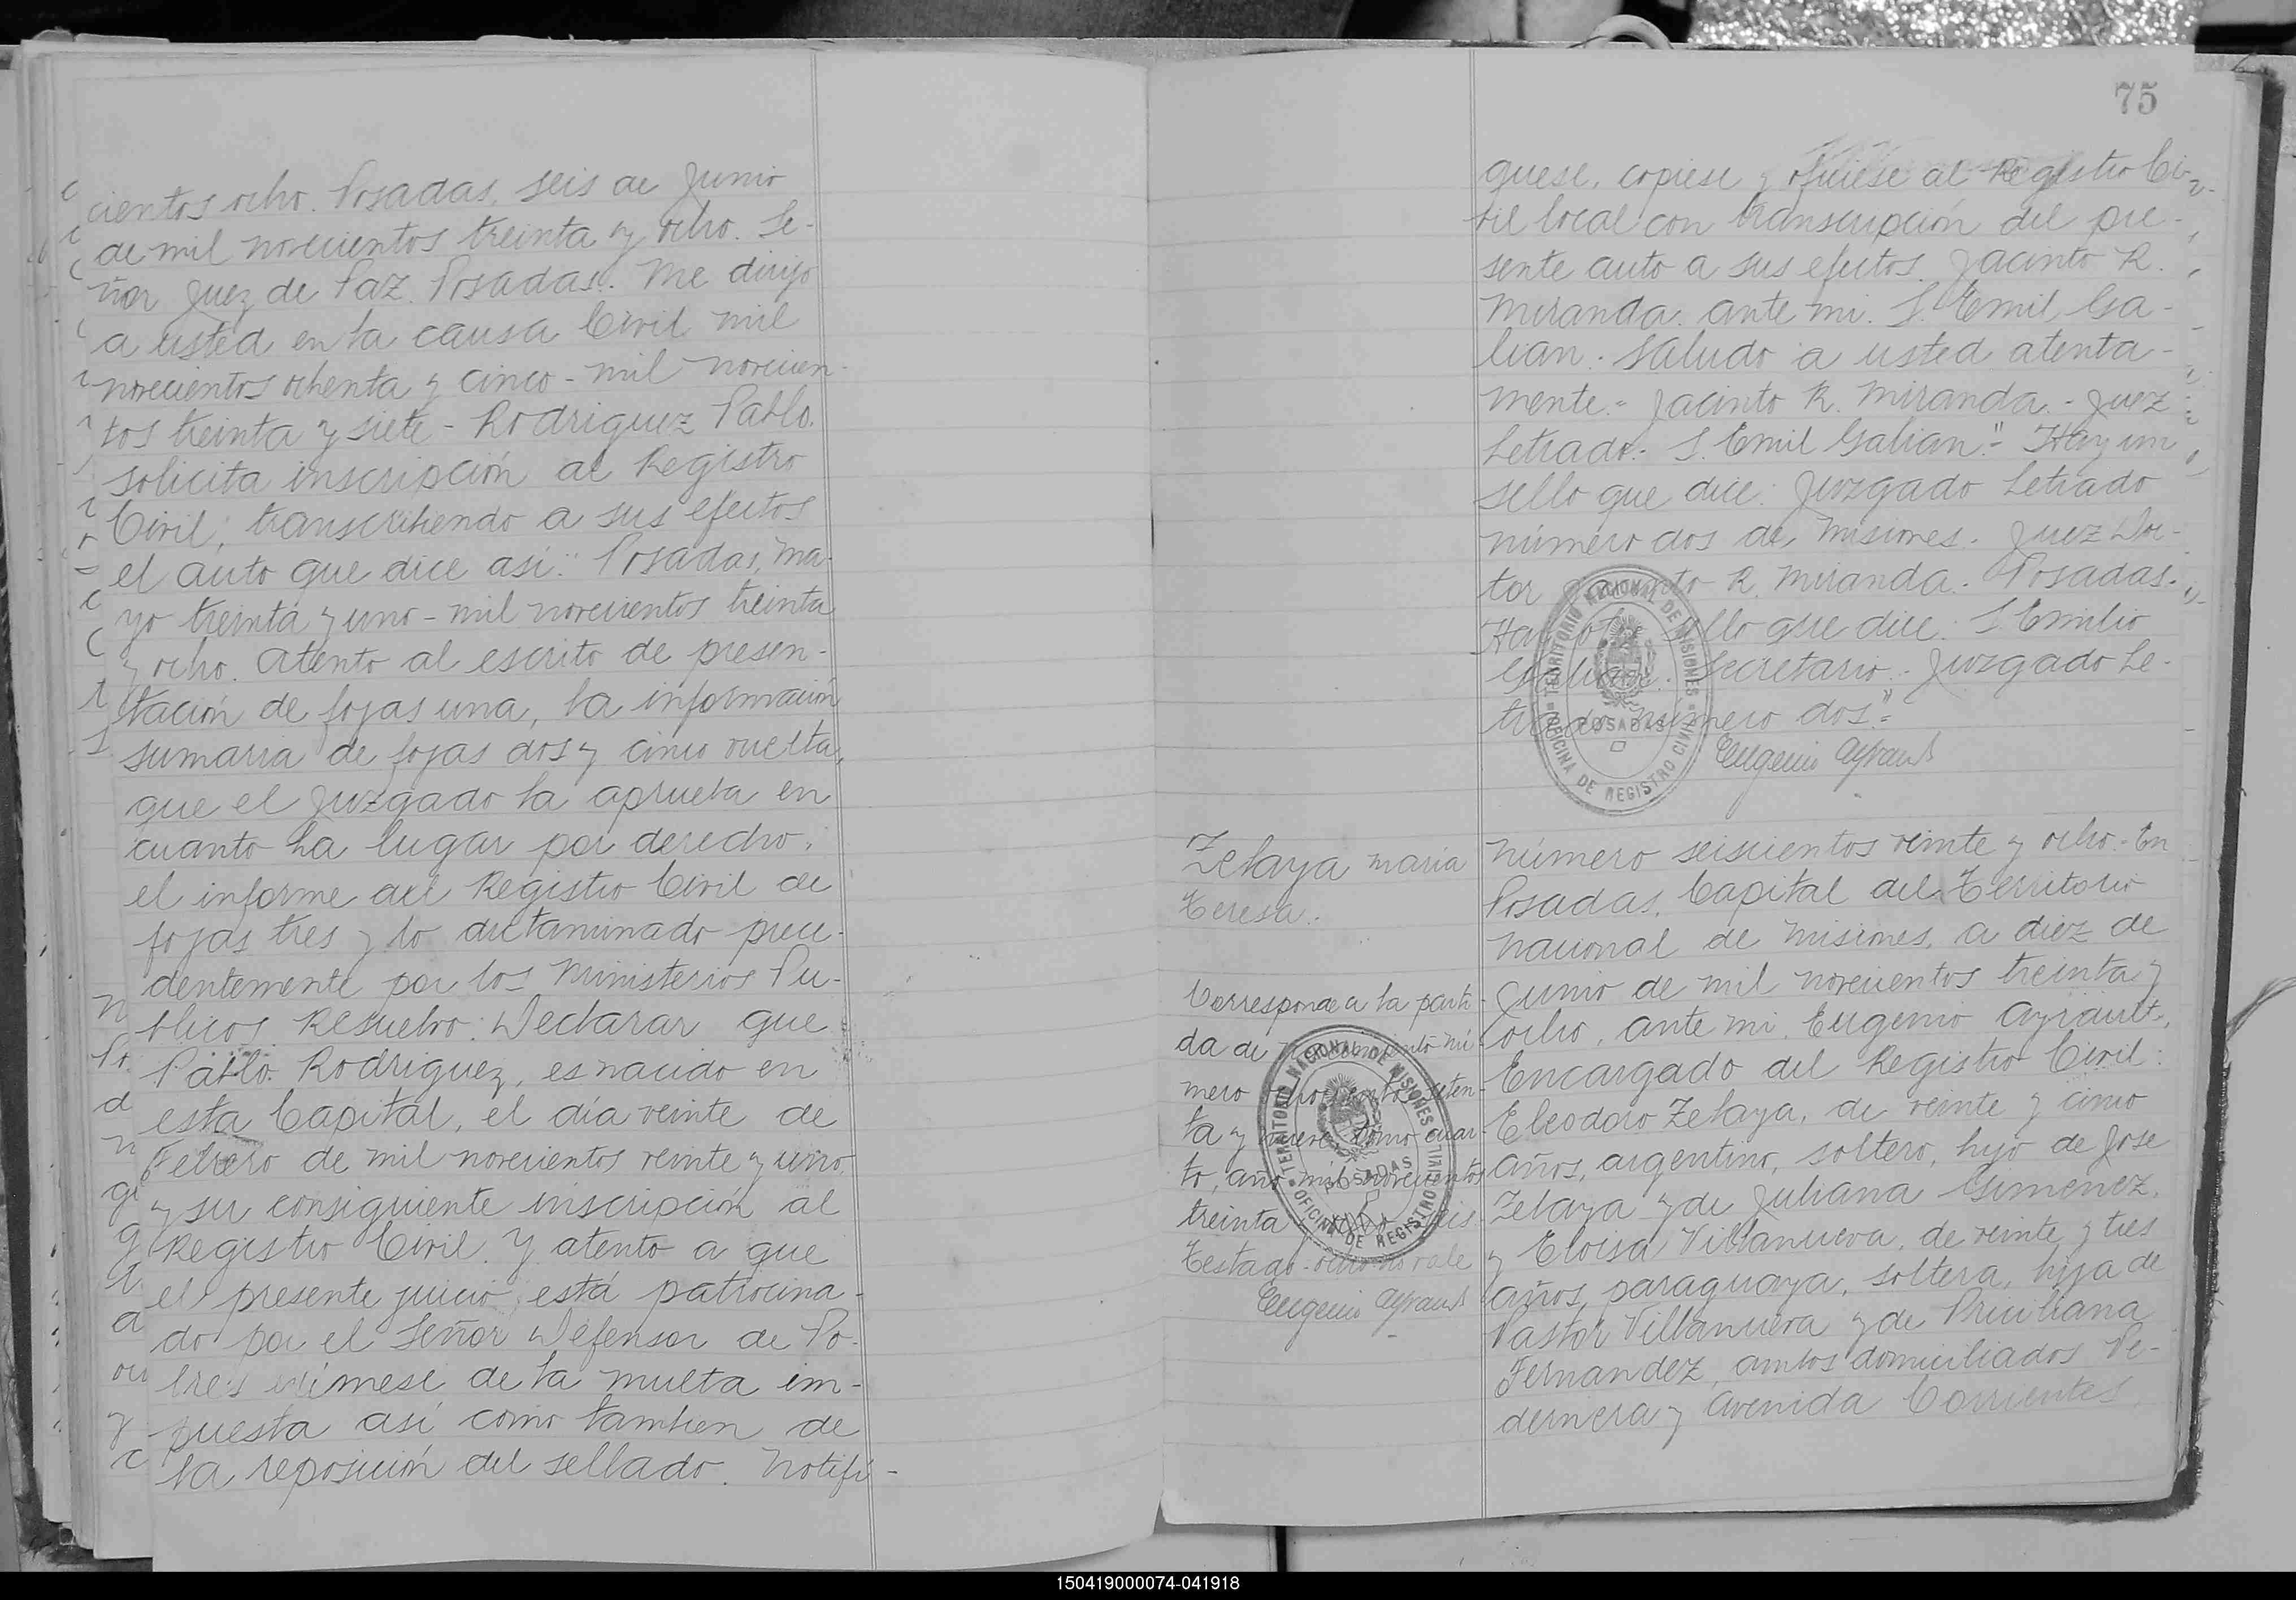 cientos ocho. Posadas, seis de Junio
de mil novecientos treinta y ocho. Se-
ñor Juez de Paz. Posadas. Me dirijo
a usted en la causa Civil mil
novecientos ochenta y cinco - mil novecien-
tos treinta y siete - Rodriguez Pablo.
solicita inscripción al Registro
Civil, transcribiendo a sus efectos
el auto que dice asi: "Posadas, Ma-
yo treinta y uno - mil novecientos treinta
y ocho. Atento al escrito de presen-
tación de fojas una, la información
sumaria de fojas dos y cinco vuelta,
que el Juzgado la aprueba en
cuanto ha lugar por derecho;
el informe del Registro Civil de
fojas tres y lo dictaminado prece-
dentemente por los Ministerios Pu-
blicos Resuelvo: Declarar que
Pablo Rodriguez, es nacido en
esta Capital, el día veinte de
Febrero de mil novecientos veinte y uno,
y su consiguiente inscripción al
Registro Civil. Y atento a que
el presente juicio, está patrocina-
do por el Señor Defensor de Po-
bres exímese de la multa im-
puesta así como tambien de
la reposición del sellado. Notifí-
75
quese, copiese y ofíciese al Registro Ci-
vil local con transcripción del pre-
sente auto a sus efectos. Jacinto R.
Miranda. ante mi. S. Emil Ga-
lian. Saludo a usted atenta-
mente.- Jacinto R. Miranda.- Juez
Letrado.- S. Emil Galian".- Hay un
sello que dice: Juzgado Letrado
número dos de Misiones. Juez Doc-
tor Jacinto R. Miranda. Posadas.
Hay otro sello que dice: S. Emilio
Galian. Secretario.- Juzgado Le-
trado número dos".-
Eugenio Ayrault
TERRITORIO NACIONAL DE MISIONES
POSADAS
OFICINA DE REGISTRO CIVIL
Zelaya Maria
Teresa.
Corresponde a la parti-
da de nacimiento nú-
mero seten-
ta y nueve, tomo cuar-
to, año mil novecientos
treinta y seis
Testado - ocho no vale
Eugenio Ayrault
TERRITORIO NACIONAL DE MISIONES
POSADAS
OFICINA DE REGISTRO CIVIL
Número seiscientos veinte y ocho.- En
Posadas, Capital del Territorio
Nacional de Misiones, a diez de
Junio de mil novecientos treinta y
ocho, ante mi, Eugenio Ayrault,
Encargado del Registro Civil:
Eleodoro Zelaya, de veinte y cinco
años, argentino, soltero, hijo de Jose
Zelaya y de Juliana Gimenez,
y Eloisa Villanueva, de veinte y tres
años, paraguaya, soltera, hija de
Pastor Villanueva y de Prisciliana
Fernandez, ambos domiciliados Pe-
dernera y Avenida Corrientes,
150419000074-041918